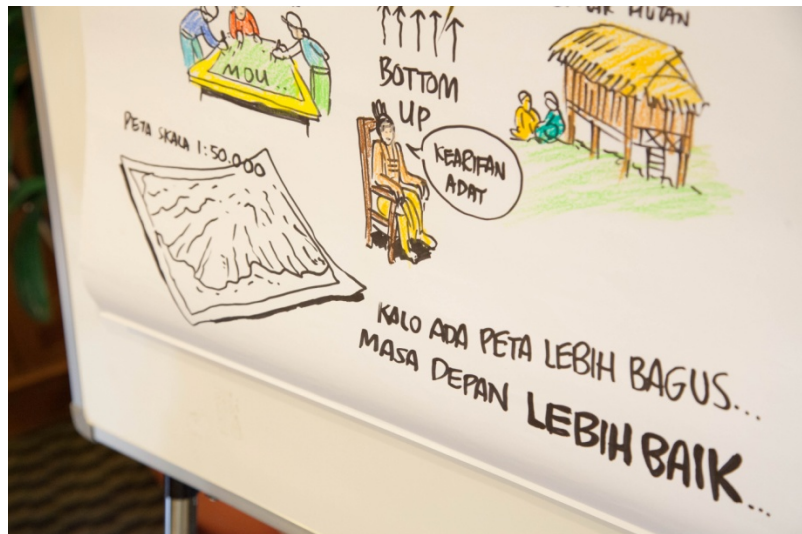 HUTAN
MOU..
BOTTOM
UP
PETA SKALA 1:50.000
KEARIFAN
ADAT
KALO ADA PETA LEBIH BAGUS...
MASA DEPAN LEBIH BAIK...